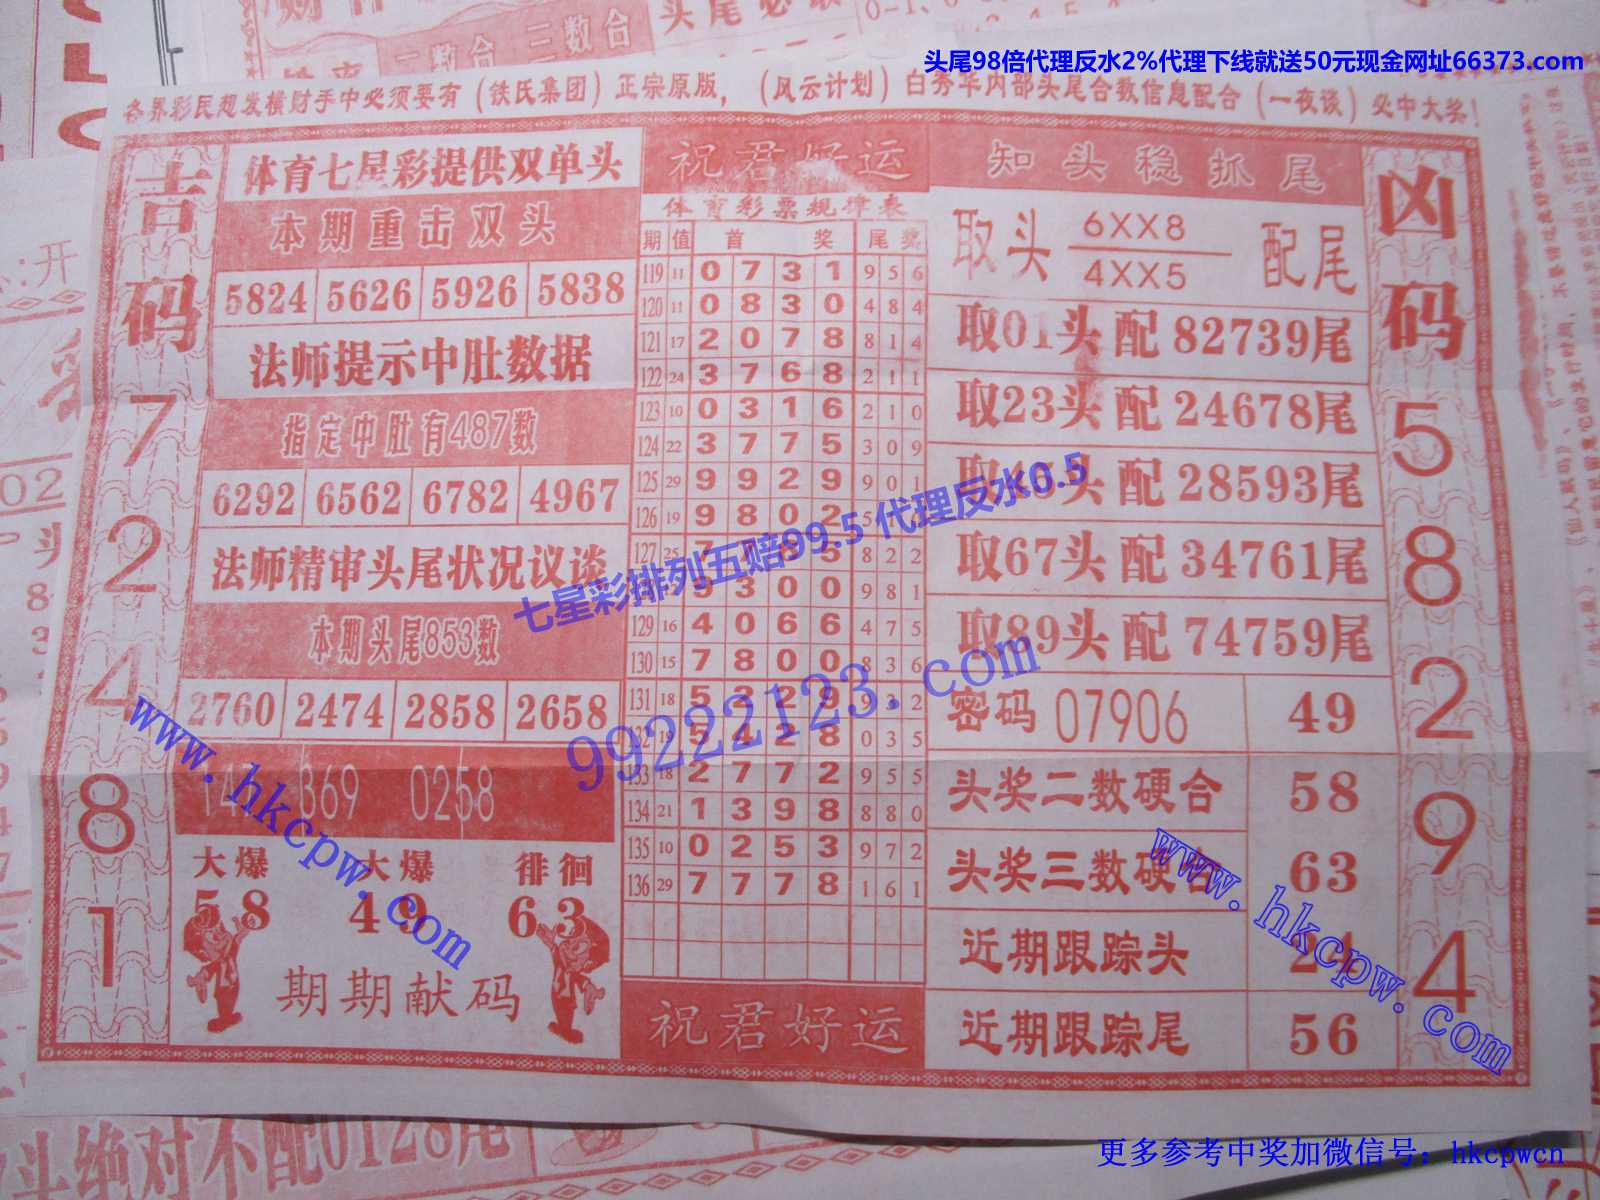 头尾98倍代理反水2%代理下线就送50元现金网址66373.com
各界彩民想发横财手中必须要有（铁氏集团）正宗原版，（风云计划）白秀华内部头尾合数信息配合（一夜谈）必中大奖！
吉码
7
2
4
8
1
体育七星彩提供双单头
本期重击双头
5824 5626 5926 5838
法师提示中肚数据
指定中肚有487数
6292 6562 6782 4967
法师精审头尾状况议谈
本期头尾853数
2760 2474 2858 2658
369 0258
大爆 大爆 徘徊
58 49 63
期期献码
祝君好运
体育彩票规律表
期 值 首 奖 尾 奖
119 11 0 7 3 1 9 5 6
120 11 0 8 3 0 4 8 4
121 17 2 0 7 8 8 1 4
122 24 3 7 6 8 2 1 1
123 10 0 3 1 6 2 1 0
124 22 3 7 7 5 3 0 9
125 29 9 9 2 9 9 0 1
126 19 9 8 0 2 5
127 25 7 5 8 2 2
3 0 0 9 8 1
129 16 4 0 6 6 4 7 5
130 15 7 8 0 0 8 3 6
131 18 5 2 2 9 9 3 2
132 19 5 4 2 8 0 3 5
133 18 2 7 7 2 9 5 5
134 21 1 3 9 8 8 8 0
135 10 0 2 5 3 9 7 2
136 29 7 7 7 8 1 6 1
祝君好运
知头稳抓尾
取头 6XX8 配尾
4XX5
取01头配82739尾
取23头配24678尾
取45头配28593尾
取67头配34761尾
取89头配74759尾
密码 07906 49
头奖二数硬合 58
头奖三数硬合 63
近期跟踪头 24
近期跟踪尾 56
凶码
5
8
2
9
4
七星彩排列五赔99.5 代理反水0.5
99222123.com
www.hkcpw.com
www.hkcpw.com
斗绝对不配0128尾
更多参考中奖加微信号：hkcpwcn